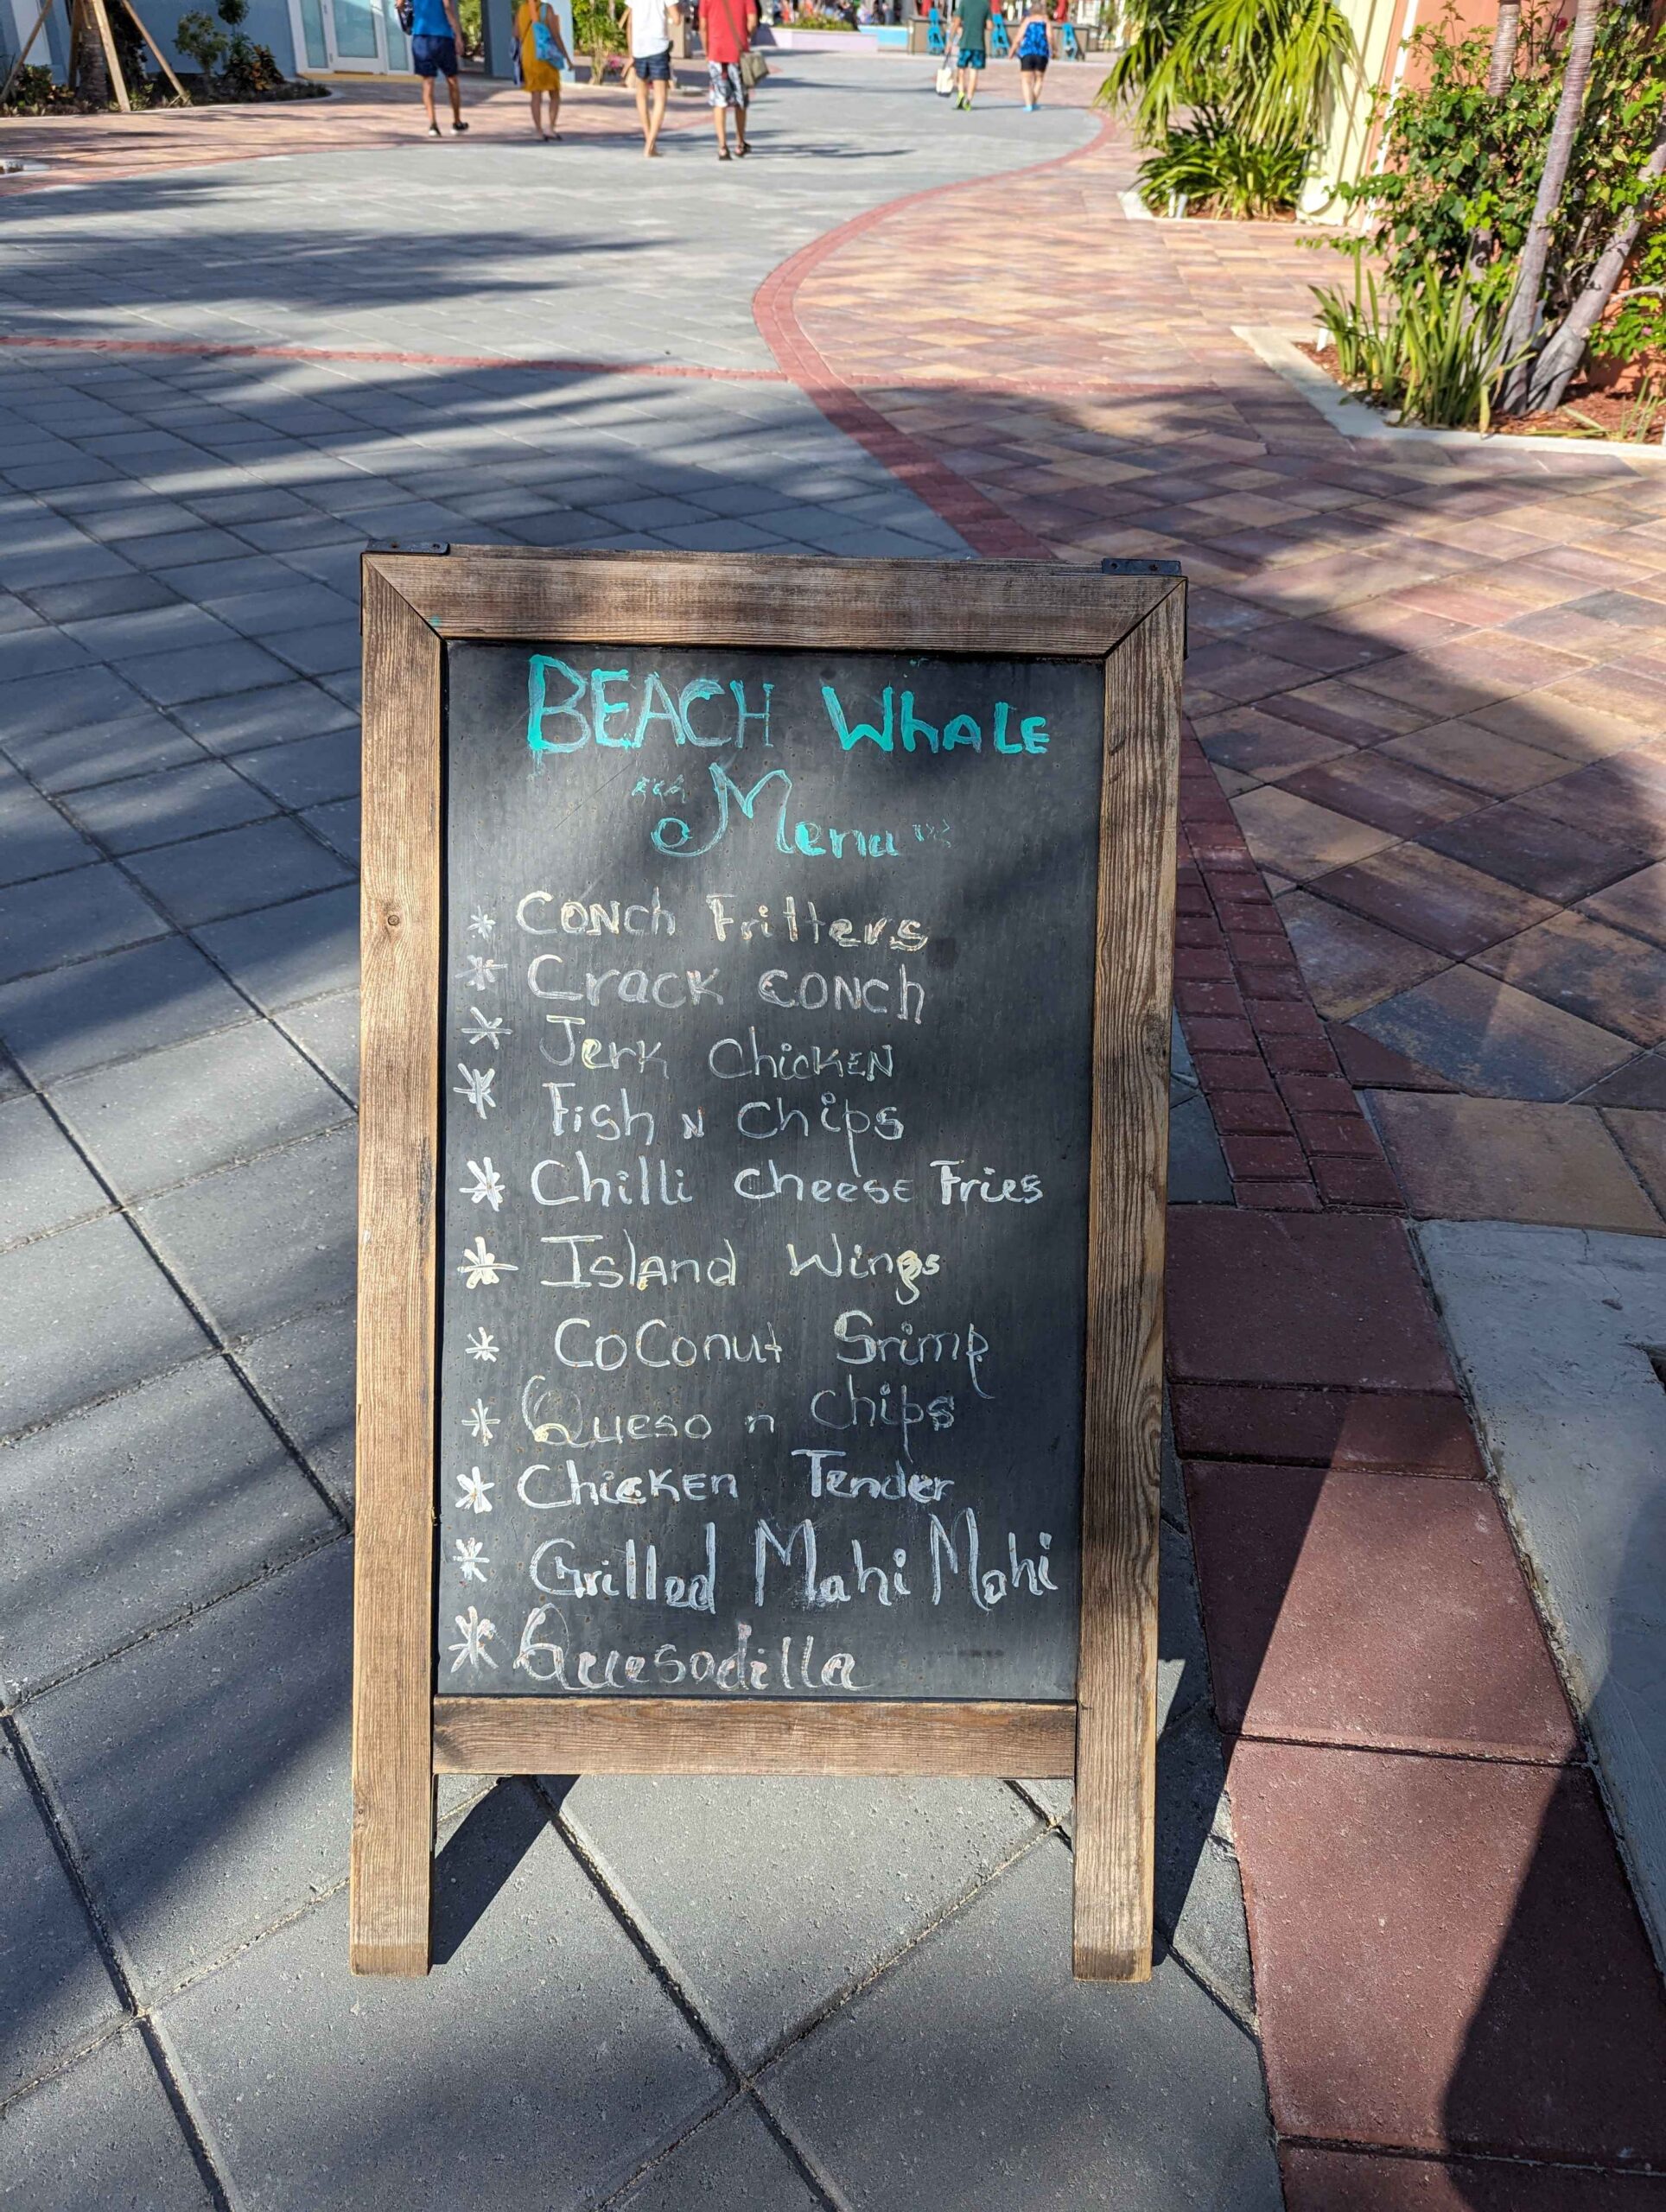 BEACH WhALE
Menu
* CONCh Fritters
* Crack CONCh
* Jerk ChicKEN
* Fish N Chips
* Chilli CheesE Fries
* IslANd Wings
* CoConut Srimp
* Queso n Chips
* ChicKEn Tender
* Grilled Mahi Mahi
* Quesadilla